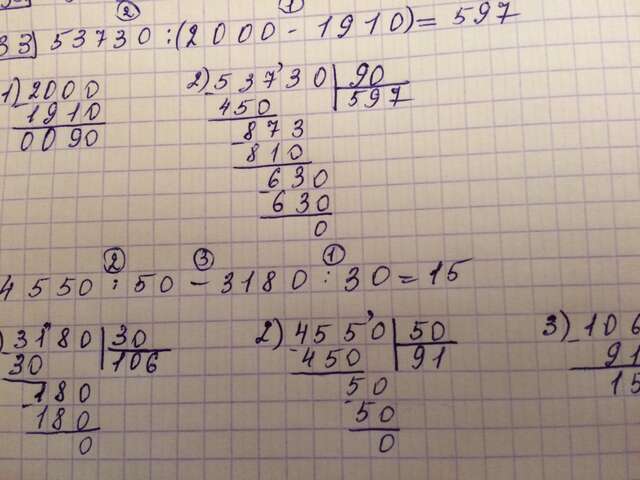 ② ①
33 53730 : (2000 - 1910) = 597
1) 2000 2) 53730 | 90
1910 450 597
0090 873
810
630
630
0
② ③ ①
4550 : 50 - 3180 : 30 = 15
) 3180 | 30 2) 4550 | 50 3) 106
30 106 450 91 91
180 50 15
180 50
0 0